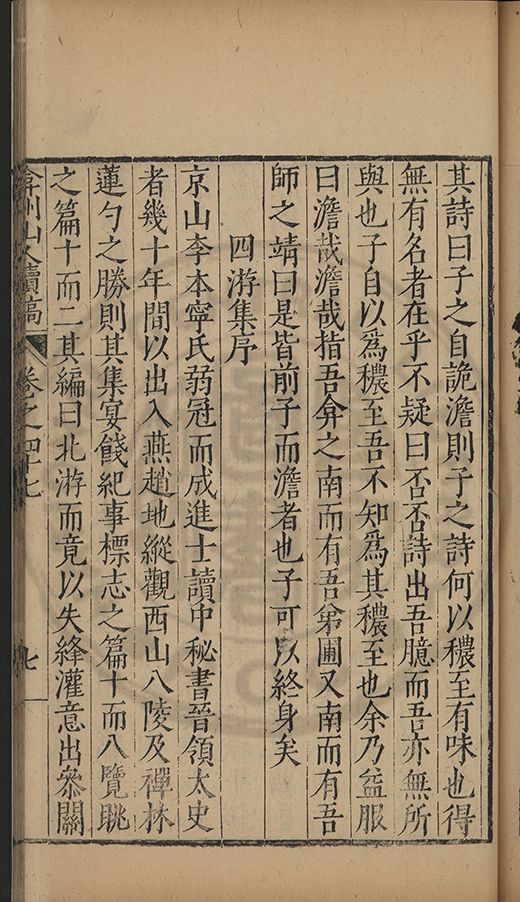 其詩曰子之自詭澹則子之詩何以穠至有味也得
無有名者在乎不疑曰否否詩出吾臆而吾亦無所
與也子自以爲穠至吾不知爲其穠至也余乃益服
曰澹哉澹哉指吾弇之南而有吾弟圃又南而有吾
師之靖曰是皆前子而澹者也子可以終身矣
四游集序
京山李本寧氏弱冠而成進士讀中秘書晉領太史
者幾十年間以出入燕趙地縱觀西山八陵及禪林
蓮勺之勝則其集宴餞紀事標志之篇十而八覽眺
之篇十而二其編曰北游而竟以失絳灌意出叅關
弇州山人續稿
卷之四十七
七